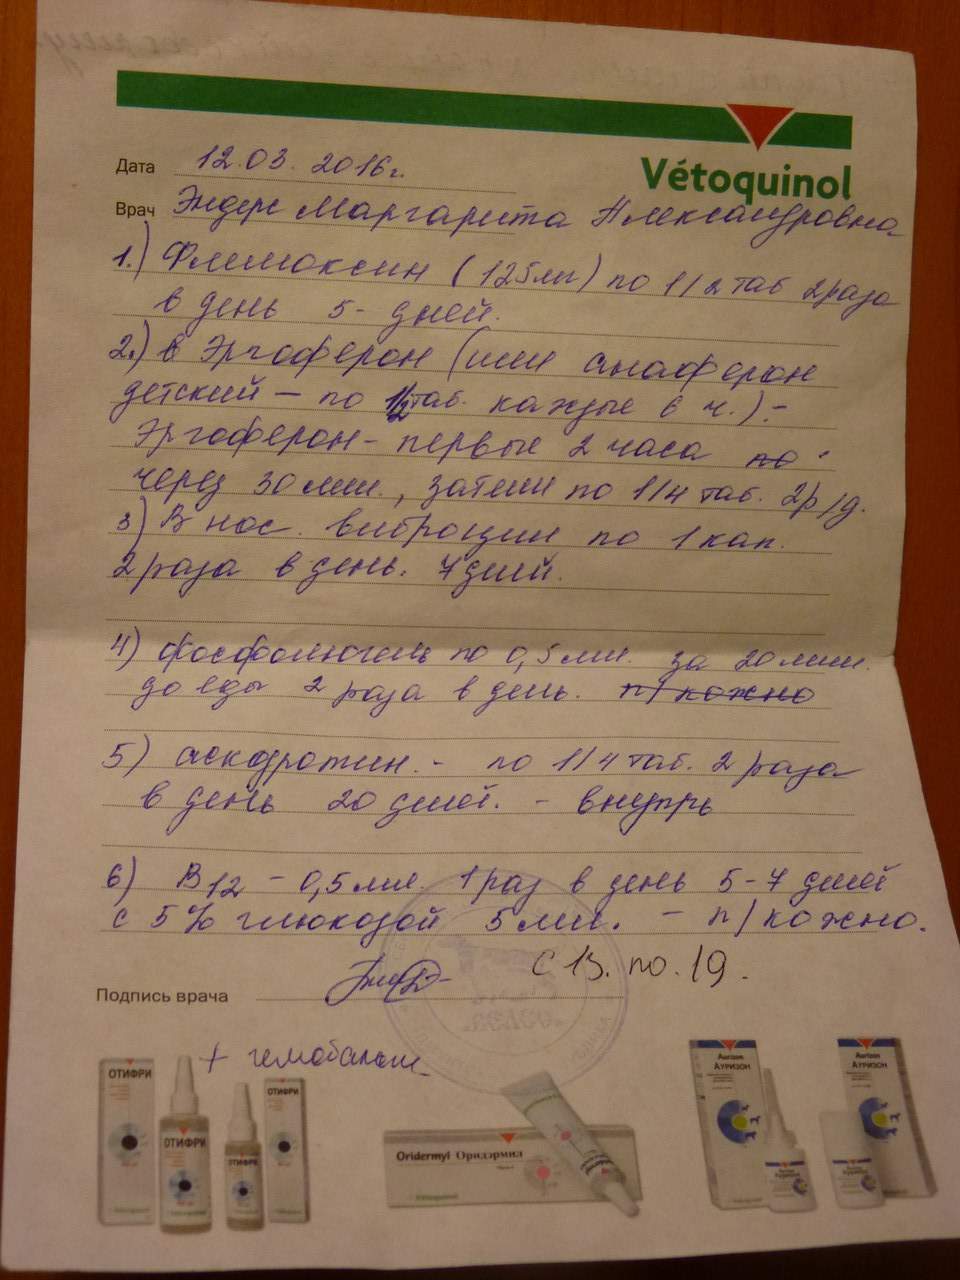 Vétoquinol
Дата 12.03.2016г.
Врач Эндерс Маргарита Александровна
1.) Флемоксин (125мг) по 1/2 таб 2раза
в день 5-дней.
2.) в Эргоферон (или анаферон
детский — по 1/2 таб. каждые 6 ч.) -
Эргоферон - первые 2 часа по
через 30 мин., затем по 1/4 таб. 2р/д.
3) В нос. виброцил по 1 кап.
2 раза в день. 7 дней.
4) фосфолюгель по 0,5 мл. за 20 мин.
до еды 2 раза в день. п/кожно
5) аскорутин. - по 1/4 таб. 2 раза
в день 20 дней. - внутрь
6) В12 - 0,5 мл. 1 раз в день 5-7 дней
с 5% глюкозой 5 мл. - п/кожно.
с 13. по. 19.
Подпись врача
+ гемобаланс
ОТИФРИ
ОТИФРИ
ОТИФРИ
ОТИФРИ
Oridermyl Оридермил
Vétoquinol
Aurizon
Ауризон
Aurizon
Ауризон